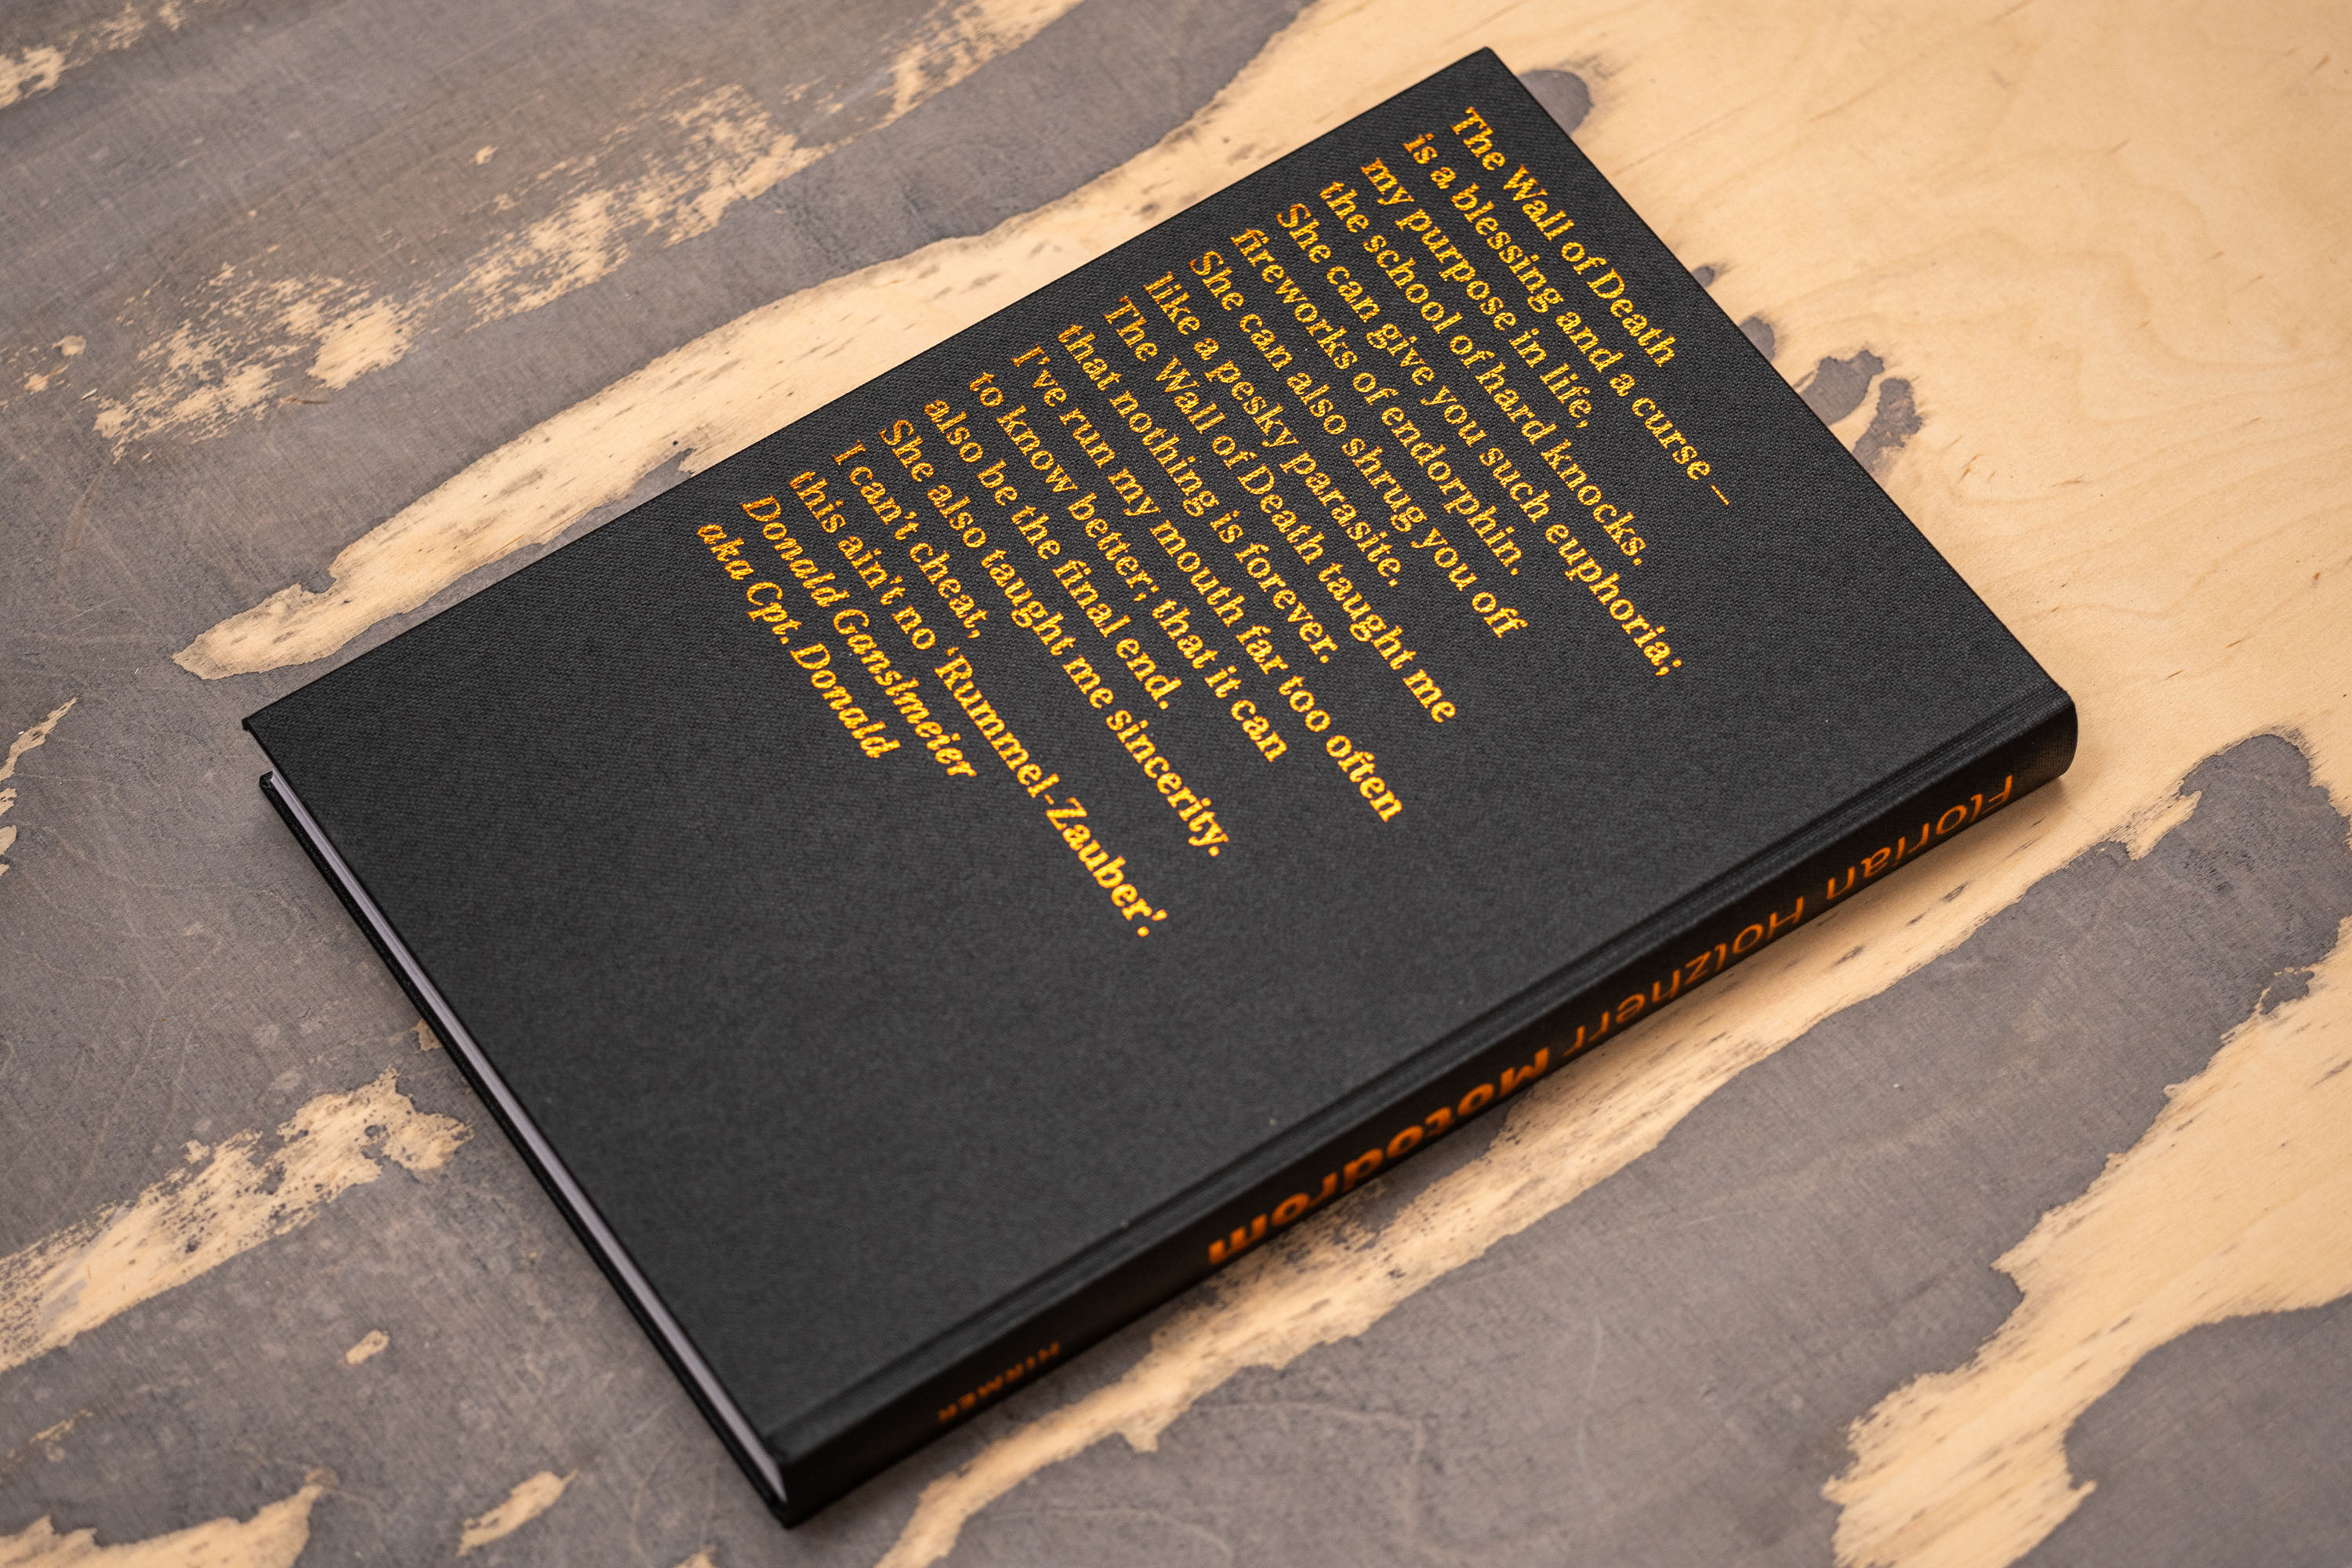 The Wall of Death
is a blessing and a curse –
my purpose in life,
the school of hard knocks.
She can give you such euphoria;
fireworks of endorphin.
She can also shrug you off
like a pesky parasite.
The Wall of Death taught me
that nothing is forever.
I've run my mouth far too often
to know better; that it can
also be the final end.
She also taught me sincerity.
I can't cheat,
this ain't no 'Rummel-Zauber'.
Donald Ganslmeier
aka Cpt. Donald
Florian Holzherr Motodrom
HIRMER